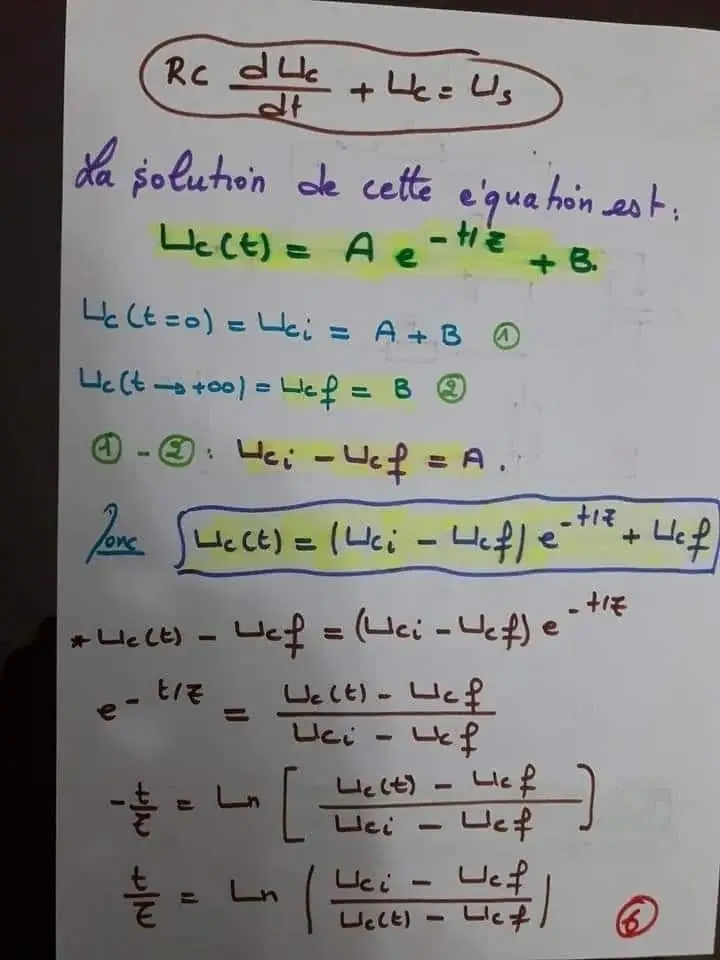 RC dUc/dt + Uc = Us
La solution de cette équation est:
Uc(t) = A e^-t/τ + B.
Uc(t=0) = Uci = A + B ①
Uc(t→+∞) = Ucf = B ②
① - ② : Uci - Ucf = A.
Donc Uc(t) = (Uci - Ucf) e^-t/τ + Ucf
* Uc(t) - Ucf = (Uci - Ucf) e^-t/τ
e^-t/τ = (Uc(t) - Ucf)/(Uci - Ucf)
-t/τ = Ln [(Uc(t) - Ucf)/(Uci - Ucf)]
t/τ = Ln ((Uci - Ucf)/(Uc(t) - Ucf))
6